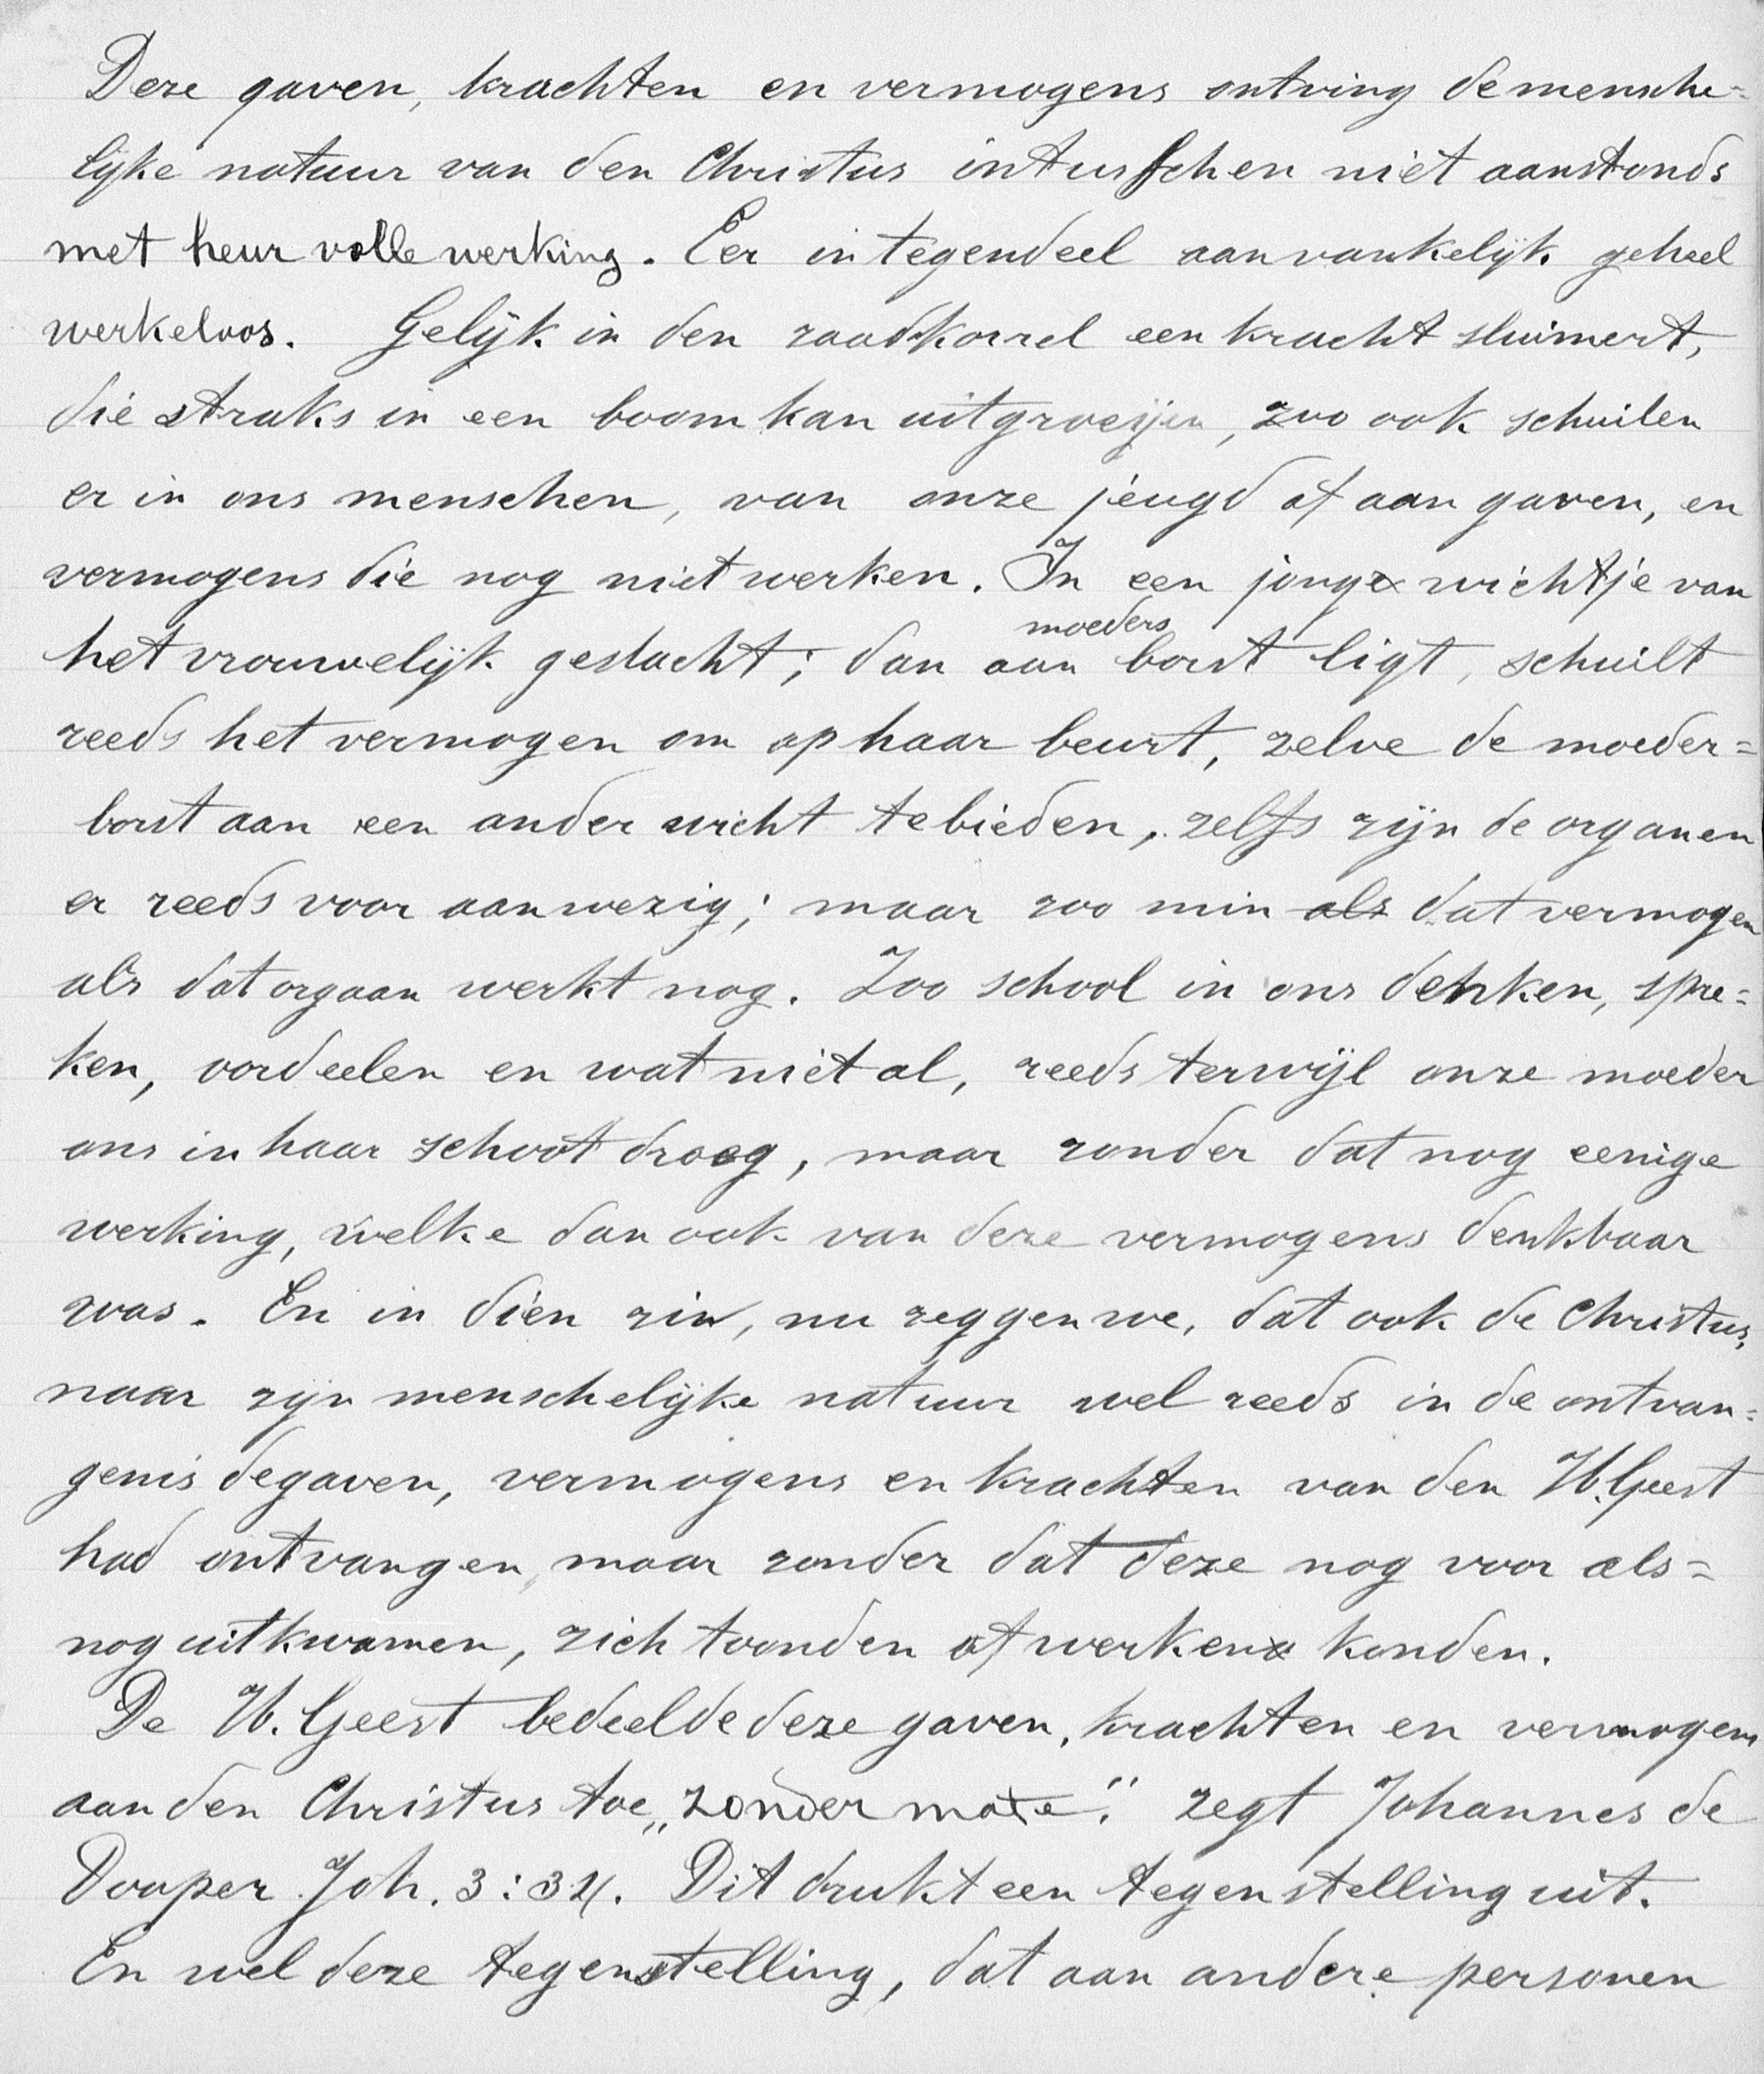 Deze gaven, krachten en vermogens ontving de mensche=
lijke natuur van den Christus intusschen niet aanstonds
met heur volle werking. Eer integendeel aanvankelijk geheel
werkeloos. Gelijk in den zaadkorrel een kracht sluimert,
die straks in een boom kan uitgroeijen, zoo ook schuilen
er in ons menschen, van onze jeugd af aan gaven, en
vermogens die nog niet werken. In een jong wichtje van
moeders
het vrouwelijk geslacht; dan aan borst ligt, schuilt
reeds het vermogen om op haar beurt, zelve de moeder=
borst aan een ander wicht te bieden, zelfs zijn de organen
er reeds voor aanwezig; maar zoo min als dat vermogen
als dat orgaan werkt nog. Zoo school in ons denken, spre=
ken, oordeelen en wat niet al, reeds terwijl onze moeder
ons in haar schoot droeg, maar zonder dat nog eenige
werking, welke dan ook van deze vermogens denkbaar
was. En in dien zin, nu zeggen we, dat ook de Christus,
naar zijn menschelijke natuur wel reeds in de ontvan=
genis de gaven, vermogens en krachten van den H. Geest
had ontvangen, maar zonder dat deze nog voor als=
nog uitkwamen, zich toonden of werken konden.
De H. Geest bedeelde deze gaven, krachten en vermogens
aan den Christus toe „zonder mate." zegt Johannes de
Dooper Joh. 3:34. Dit drukt een tegenstelling uit.
En wel deze tegenstelling, dat aan andere personen